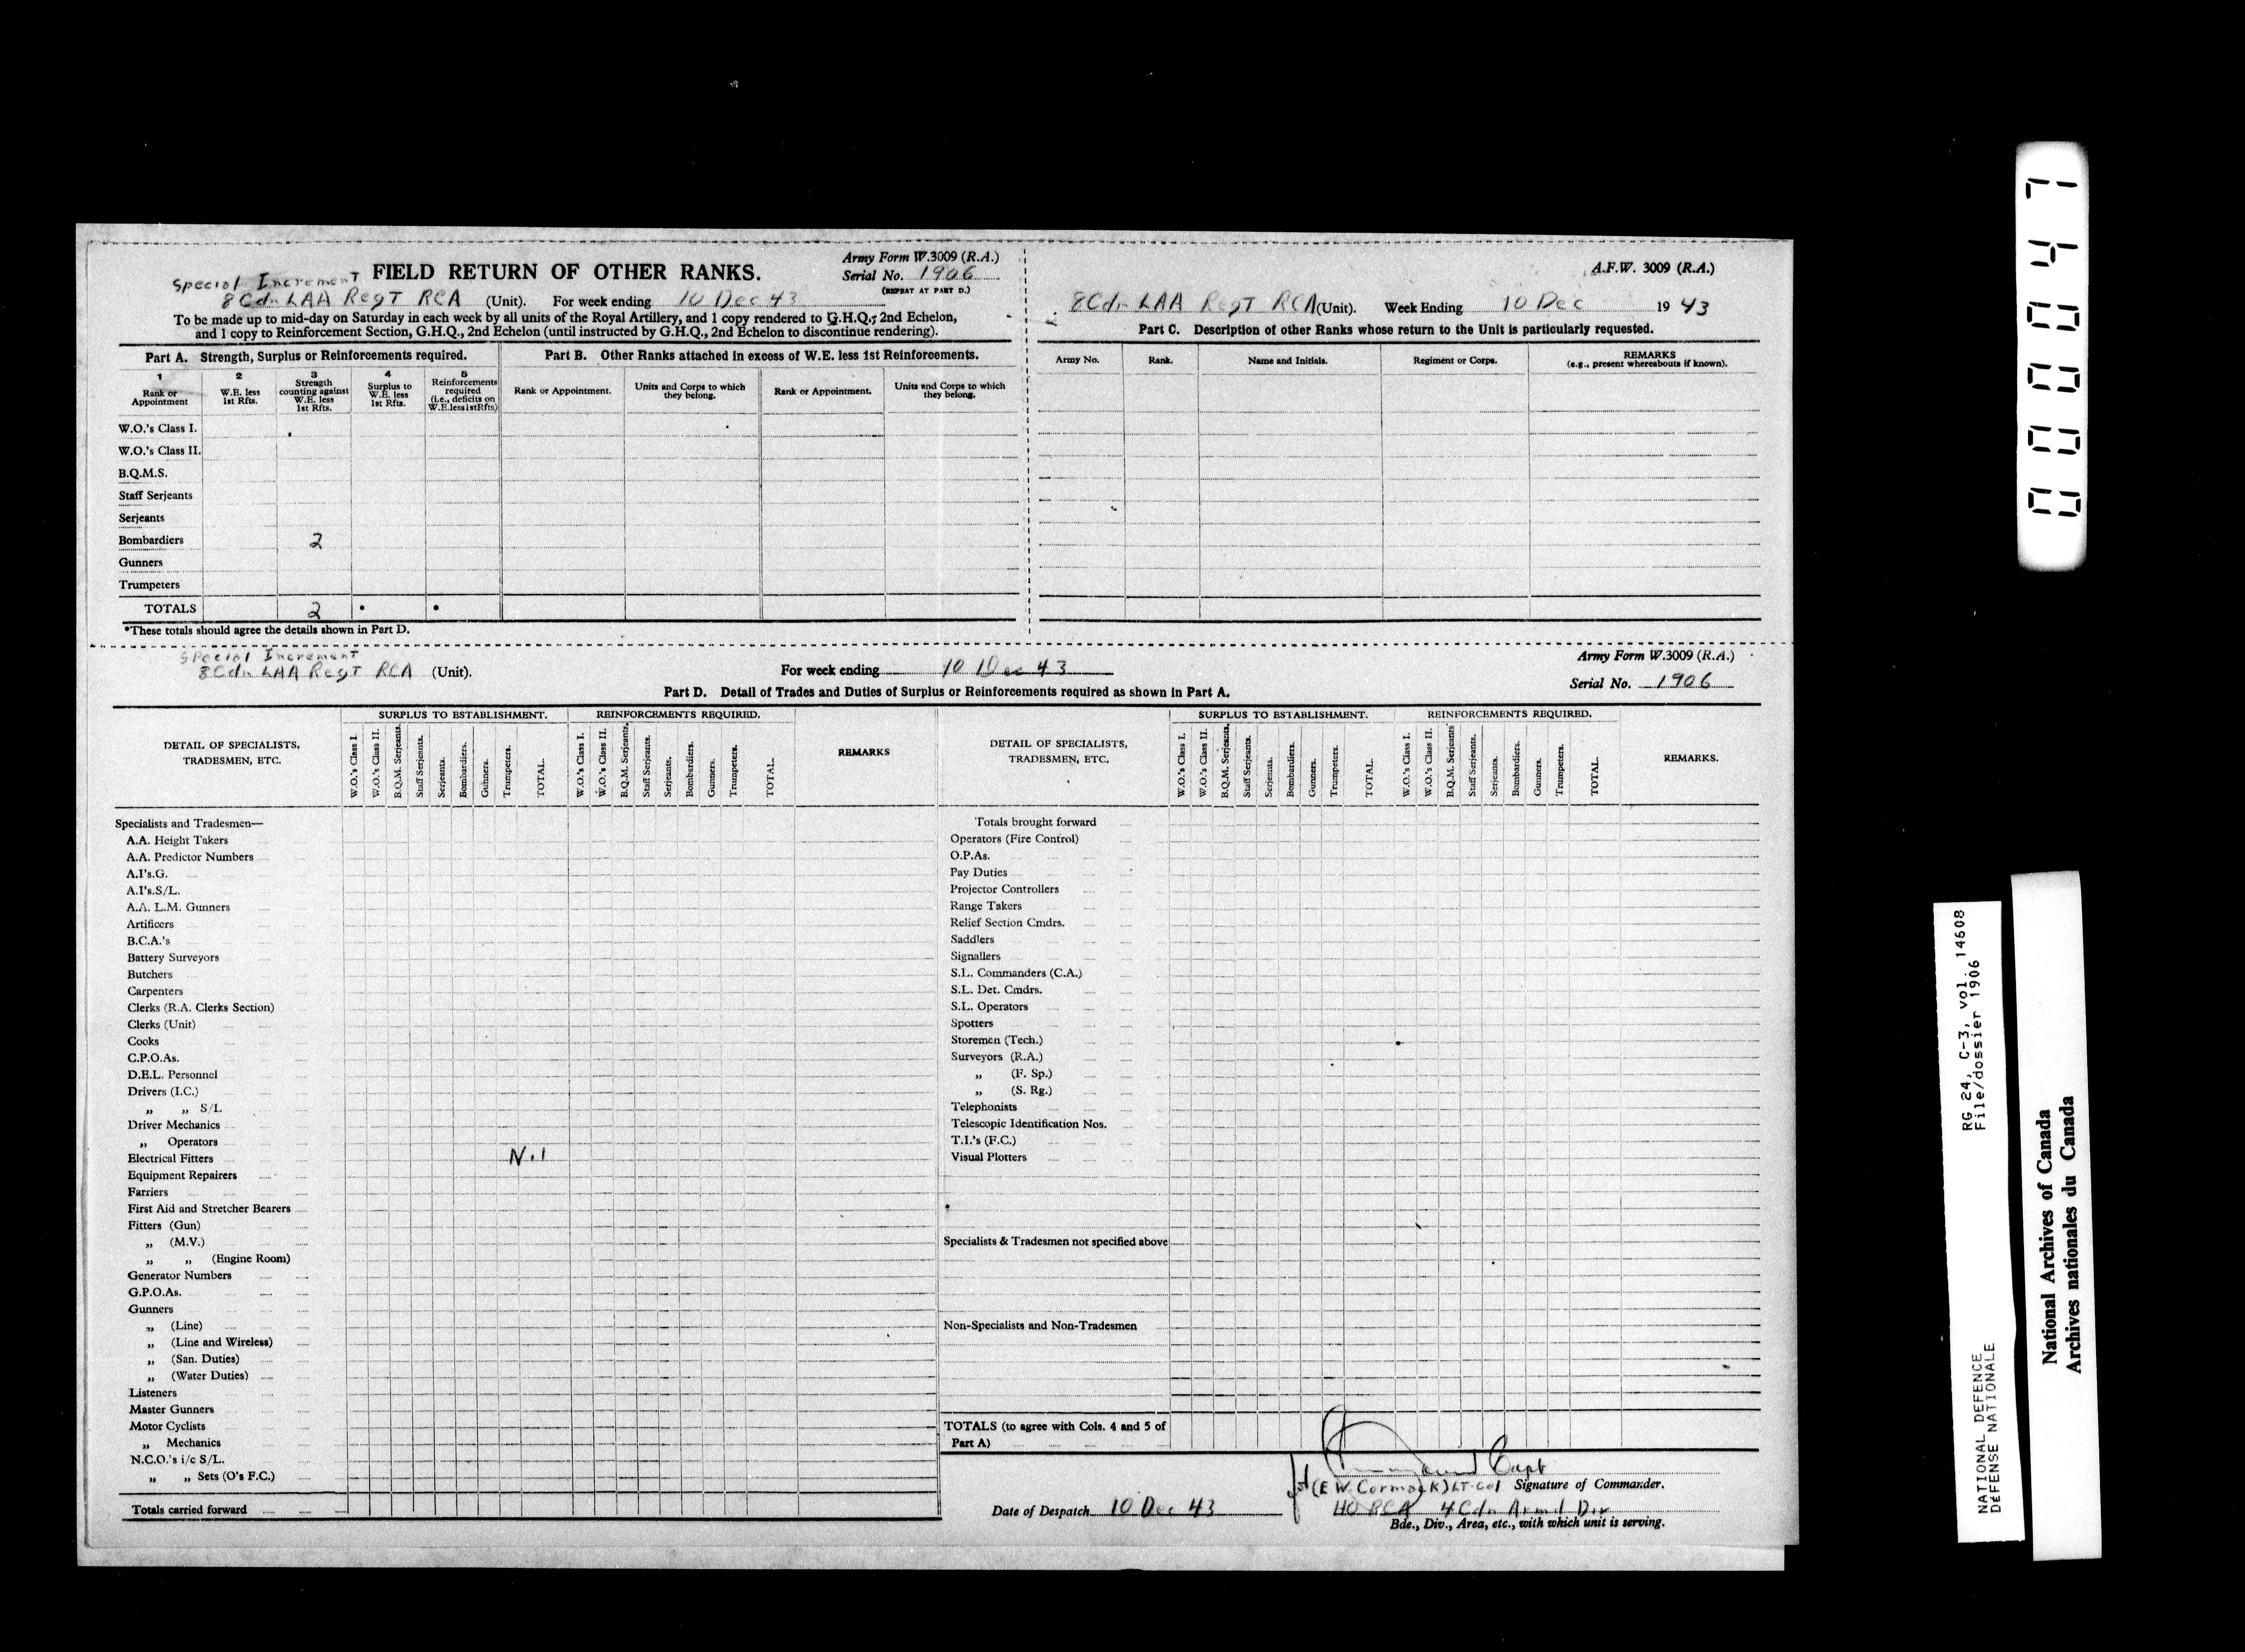 Army Form W.3009 (R.A.)
Special Increment FIELD RETURN OF OTHER RANKS. Serial No. 1906
(REPEAT AT PART D.)
8 Cdn LAA Regt RCA (Unit). For week ending 10 Dec 43
To be made up to mid-day on Saturday in each week by all units of the Royal Artillery, and 1 copy rendered to G.H.Q., 2nd Echelon,
and 1 copy to Reinforcement Section, G.H.Q., 2nd Echelon (until instructed by G.H.Q., 2nd Echelon to discontinue rendering).
Part A. Strength, Surplus or Reinforcements required.
1 2 3 4 5
Rank or Appointment
W.E. less 1st Rfts.
Strength counting against W.E. less 1st Rfts.
Surplus to W.E. less 1st Rfts.
Reinforcements required (i.e., deficits on W.E. less 1st Rfts)
W.O.'s Class I.
W.O.'s Class II.
B.Q.M.S.
Staff Serjeants
Serjeants
Bombardiers 2
Gunners
Trumpeters
TOTALS 2 • •
*These totals should agree the details shown in Part D.
Part B. Other Ranks attached in excess of W.E. less 1st Reinforcements.
Rank or Appointment. Units and Corps to which they belong. Rank or Appointment. Units and Corps to which they belong.
A.F.W. 3009 (R.A.)
8 Cdn LAA Regt RCA (Unit). Week Ending 10 Dec 19 43
Part C. Description of other Ranks whose return to the Unit is particularly requested.
Army No. Rank. Name and Initials. Regiment or Corps. REMARKS
(e.g., present whereabouts if known).
Special Increment
8 Cdn LAA Regt RCA (Unit). For week ending 10 Dec 43
Army Form W.3009 (R.A.)
Serial No. 1906
Part D. Detail of Trades and Duties of Surplus or Reinforcements required as shown in Part A.
DETAIL OF SPECIALISTS,
TRADESMEN, ETC.
SURPLUS TO ESTABLISHMENT.
W.O.'s Class I.
W.O.'s Class II.
B.Q.M. Serjeants.
Staff Serjeants.
Serjeants.
Bombardiers.
Gunners.
Trumpeters.
TOTAL.
REINFORCEMENTS REQUIRED.
W.O.'s Class I.
W.O.'s Class II.
B.Q.M. Serjeants.
Staff Serjeants.
Serjeants.
Bombardiers.
Gunners.
Trumpeters.
TOTAL.
REMARKS
Specialists and Tradesmen—
A.A. Height Takers
A.A. Predictor Numbers
A.I's.G.
A.I's.S/L.
A.A. L.M. Gunners
Artificers
B.C.A.'s
Battery Surveyors
Butchers
Carpenters
Clerks (R.A. Clerks Section)
Clerks (Unit)
Cooks
C.P.O.As.
D.E.L. Personnel
Drivers (I.C.)
„ „ S/L
Driver Mechanics
„ Operators
Electrical Fitters Nil
Equipment Repairers
Farriers
First Aid and Stretcher Bearers
Fitters (Gun)
„ (M.V.)
„ „ (Engine Room)
Generator Numbers
G.P.O.As.
Gunners
„ (Line)
„ (Line and Wireless)
„ (San. Duties)
„ (Water Duties)
Listeners
Master Gunners
Motor Cyclists
„ Mechanics
N.C.O.'s i/c S/L.
„ „ Sets (O's F.C.)
Totals carried forward
DETAIL OF SPECIALISTS,
TRADESMEN, ETC.
SURPLUS TO ESTABLISHMENT.
W.O.'s Class I.
W.O.'s Class II.
B.Q.M. Serjeants.
Staff Serjeants.
Serjeants.
Bombardiers.
Gunners.
Trumpeters.
TOTAL.
REINFORCEMENTS REQUIRED.
W.O.'s Class I.
W.O.'s Class II.
B.Q.M. Serjeants
Staff Serjeants.
Serjeants.
Bombardiers.
Gunners.
Trumpeters.
TOTAL.
REMARKS.
Totals brought forward
Operators (Fire Control)
O.P.As.
Pay Duties
Projector Controllers
Range Takers
Relief Section Cmdrs.
Saddlers
Signallers
S.L. Commanders (C.A.)
S.L. Det. Cmdrs.
S.L. Operators
Spotters
Storemen (Tech.)
Surveyors (R.A.)
„ (F. Sp.)
„ (S. Rg.)
Telephonists
Telescopic Identification Nos.
T.I.'s (F.C.)
Visual Plotters
Specialists & Tradesmen not specified above
Non-Specialists and Non-Tradesmen
TOTALS (to agree with Cols. 4 and 5 of
Part A)
Capt
(E W Cormack) Lt-Col Signature of Commander.
Date of Despatch 10 Dec 43
HQ RCA 4 Cdn Armd Div
Bde., Div., Area, etc., with which unit is serving.
000047
RG 24, C-3, vol. 14608
File/dossier 1906
NATIONAL DEFENCE
DÉFENSE NATIONALE
National Archives of Canada
Archives nationales du Canada